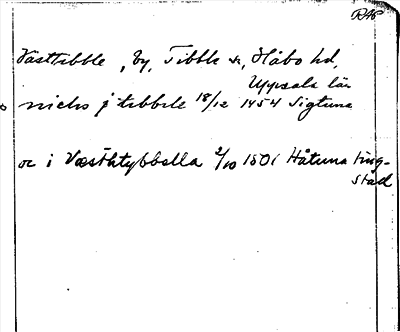 RAP
Västtibble, by, Tibble sn, Håbo hd,
Uppsala län
niclis j tibbele 18/12 1454 Sigtuna
oc i Væsthtybbella 2/10 1501 Håtuna ting-
stad